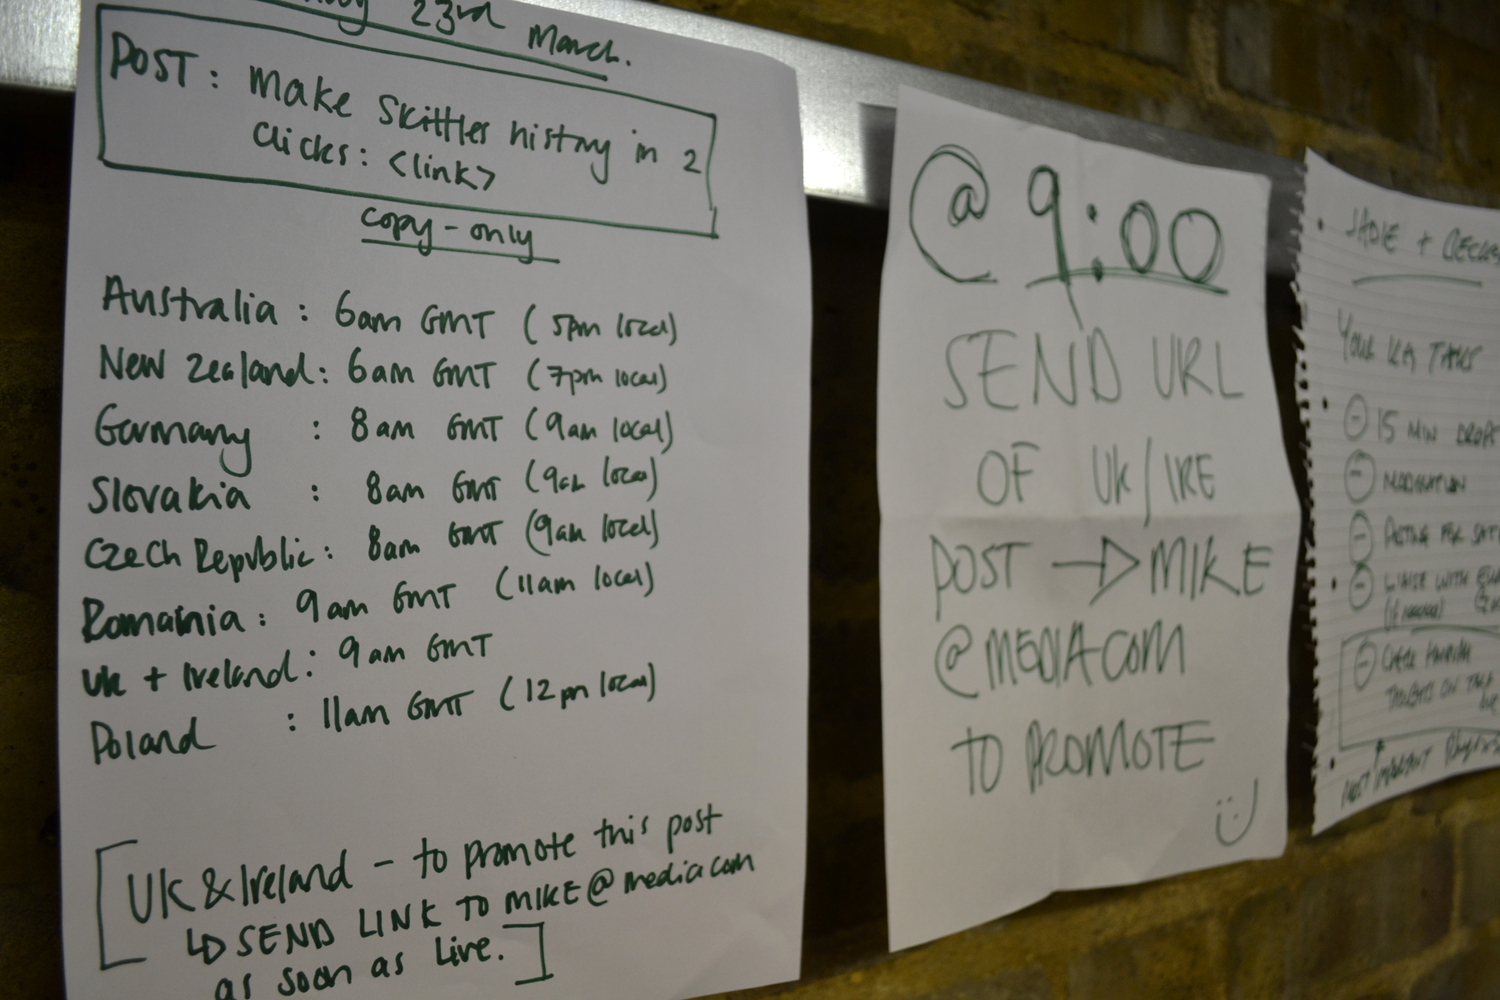 23rd March.
POST: Make Skittles history in 2
clicks: <link>
copy-only
Australia : 6am GMT (5pm local)
New Zealand: 6am GMT (7pm local)
Germany : 8am GMT (9am local)
Slovakia : 8am GMT (9am local)
Czech Republic: 8am GMT (9am local)
Romania: 9am GMT (11am local)
UK + Ireland: 9am GMT
Poland : 11am GMT (12pm local)
UK & Ireland - to promote this post
SEND LINK TO MIKE@mediacom
as soon as Live.
@ 9:00
SEND URL
OF UK/IRE
POST → MIKE
@MEDIACOM
TO PROMOTE
JADE +
YOUR
15 MIN DROPS
MODERATION
LIAISE WITH